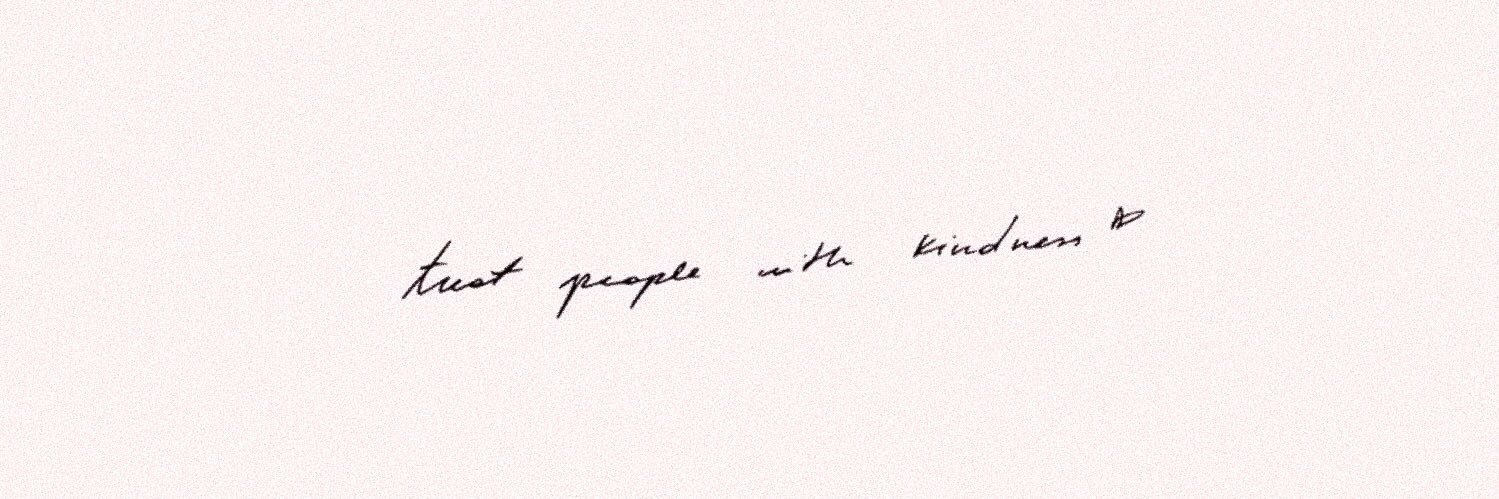 trust people with kindness